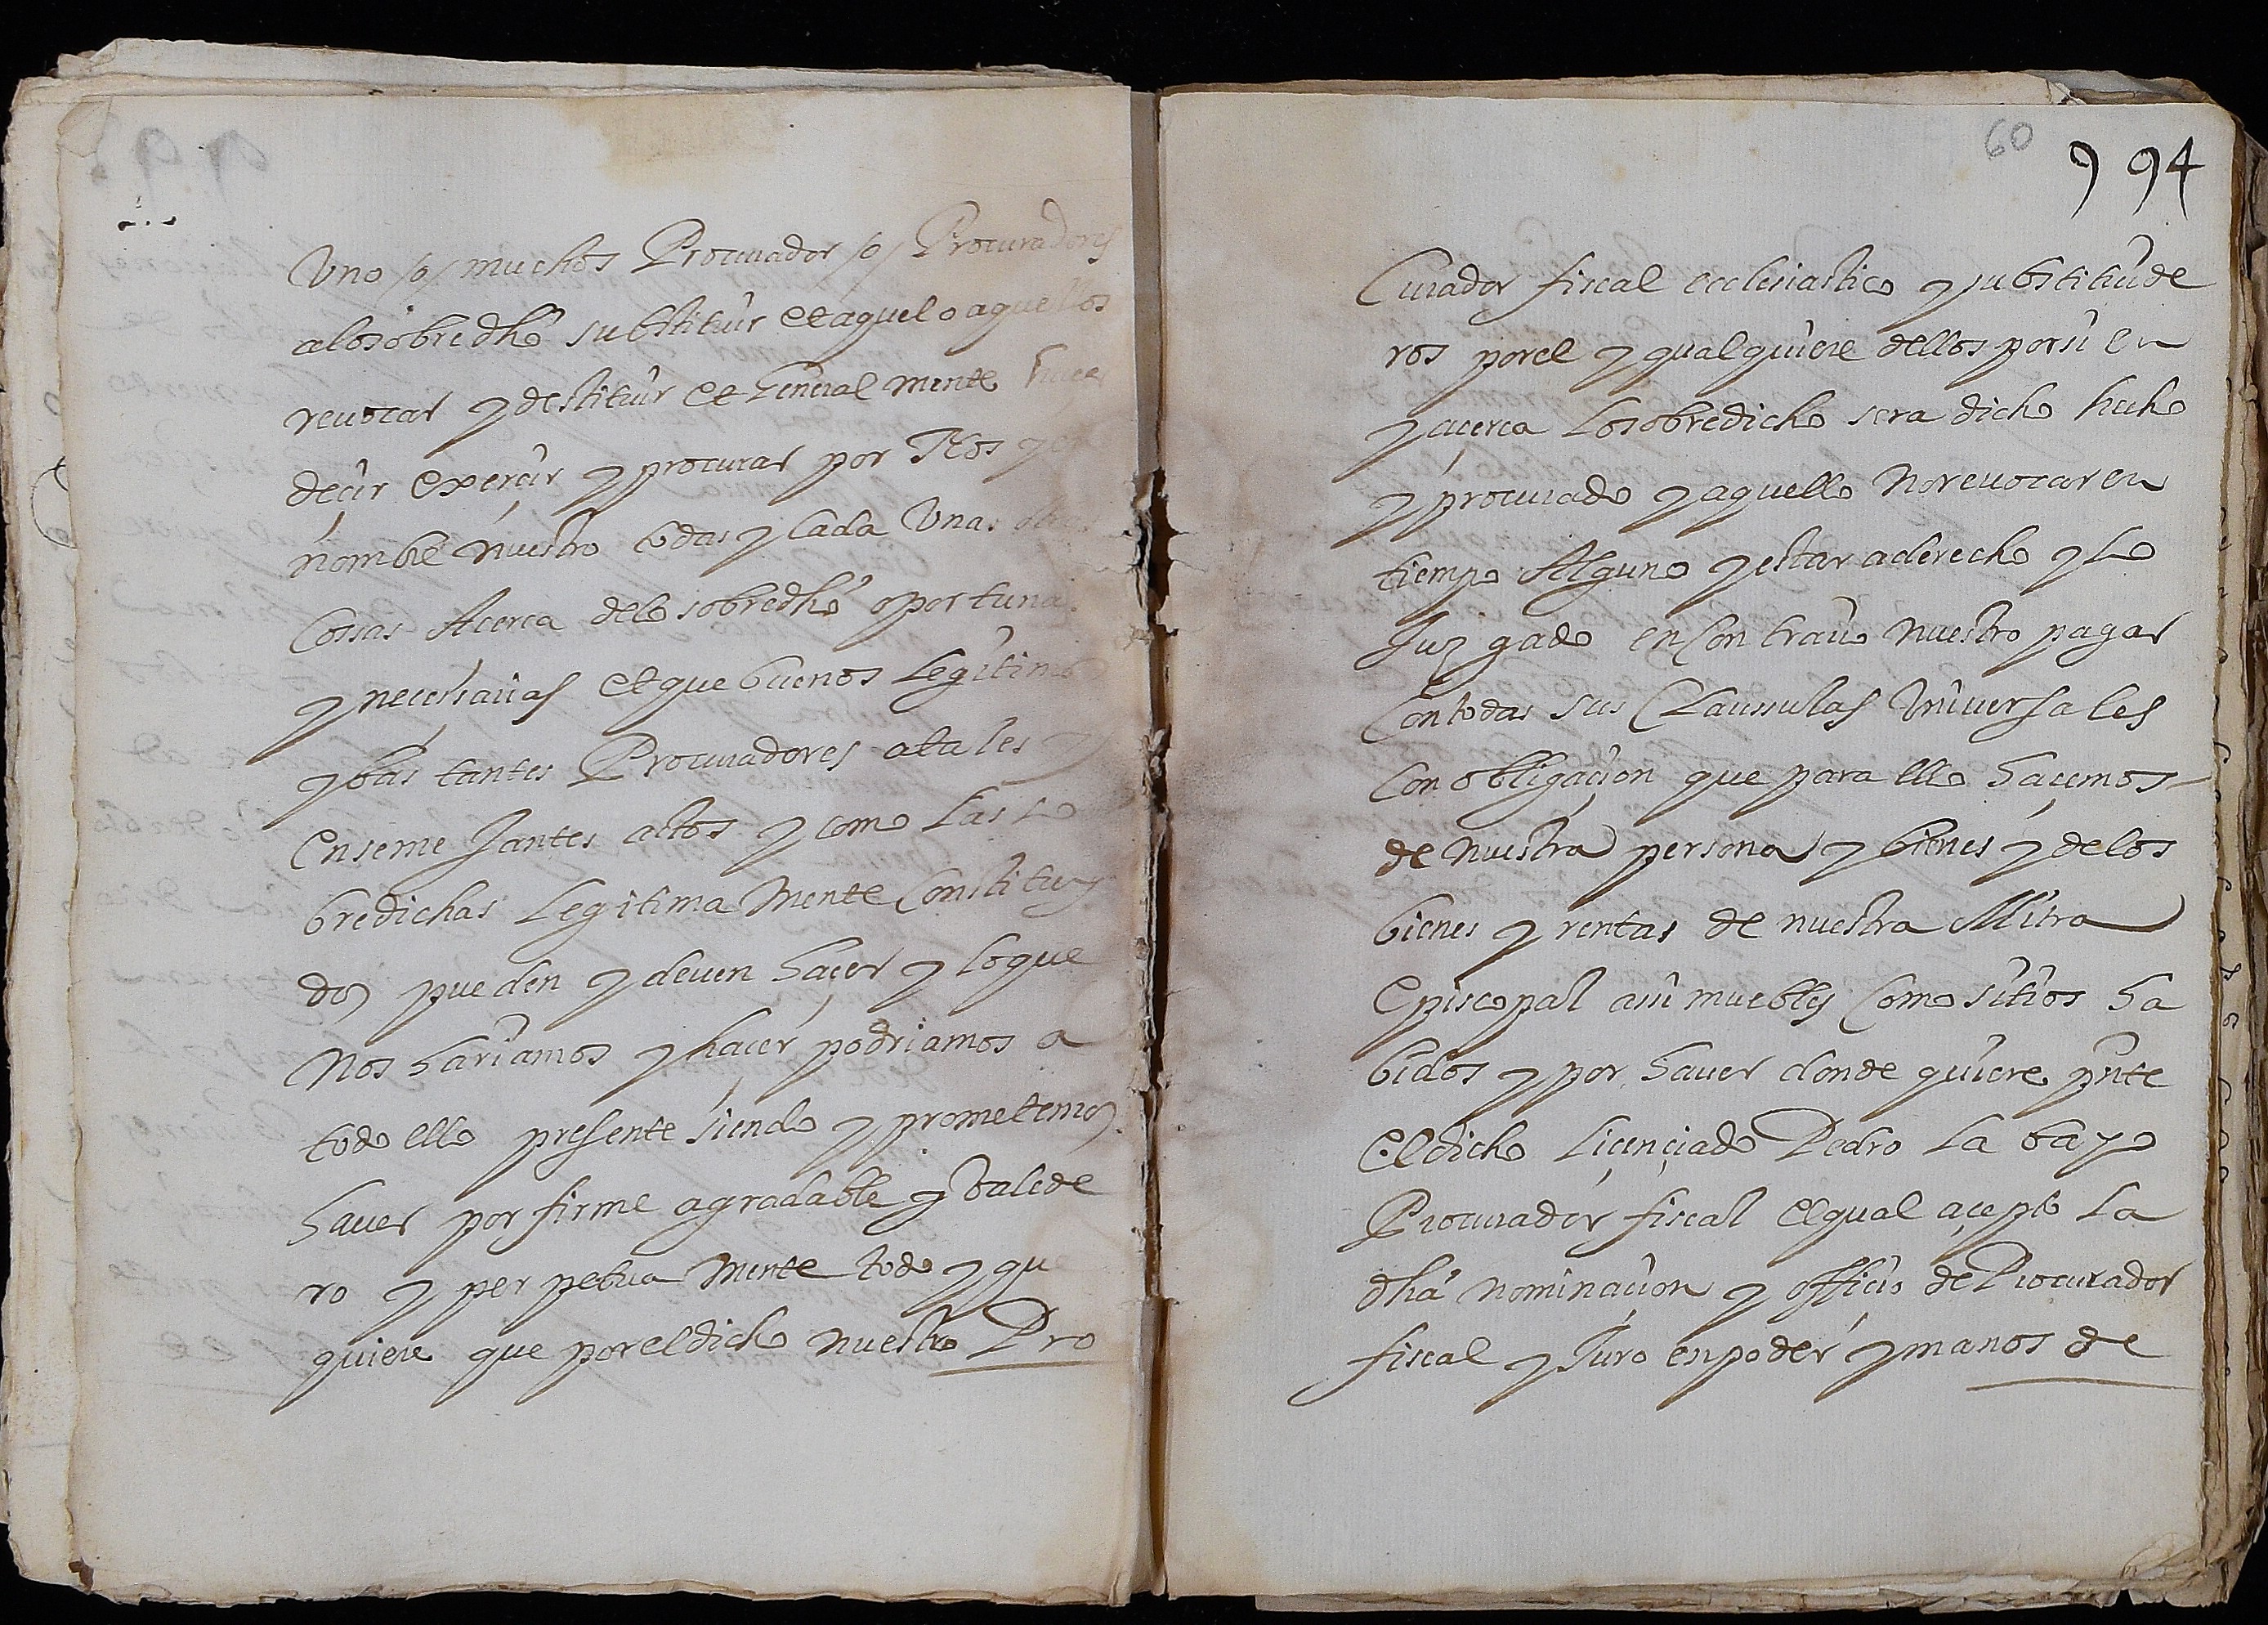 Uno /o/ muchos Procurador /o/ Procuradores
alosobredhõ substituir et aquel o aquellos
revocar y destituir et General mente hacer
decir exercir y procurar por Nos y en
nombre nuestro todas y Cada Unas otras
Cossas Acerca delo sobredhõ oportunas
y necessarias et que buenos Legitimos
y bas tantes Procuradores a tales y
en seme Jantes actos y como Las so
bredichas Legitima Mente Constituy
dos pueden y deven haçer y lo que
Nos hariamos y haçer podriamos a
todo ello presente siendo y prometemos
haver por firme agradable y Valede
ro y per petua Mente todo y que
quiere que por el dicho nuestro Pro
60
994
Curador fiscal ecclesiastico y substitude
ros porel y qualquiere dellos porsi en
y acerca Losobredicho sera dicho hecho
y procurado y aquello No revocar en
tiempo Alguno y estar aderecho y Lo
Juzgado en Contrario nuestro pagar
Con todas sus Claussulas Universales
Con obligaçion que para ello haçemos
de nuestra persona y bienes y delos
bienes y rentas de nuestra Mitra
Episcopal assi muebles Como sitios ha
bidos y por haver donde quiere pñte
el dicho Licençiado Pedro La bayo
Procurador fiscal el qual açepto La
dhã nominaçion y officio de Procurador
fiscal y Juro en poder y manos de